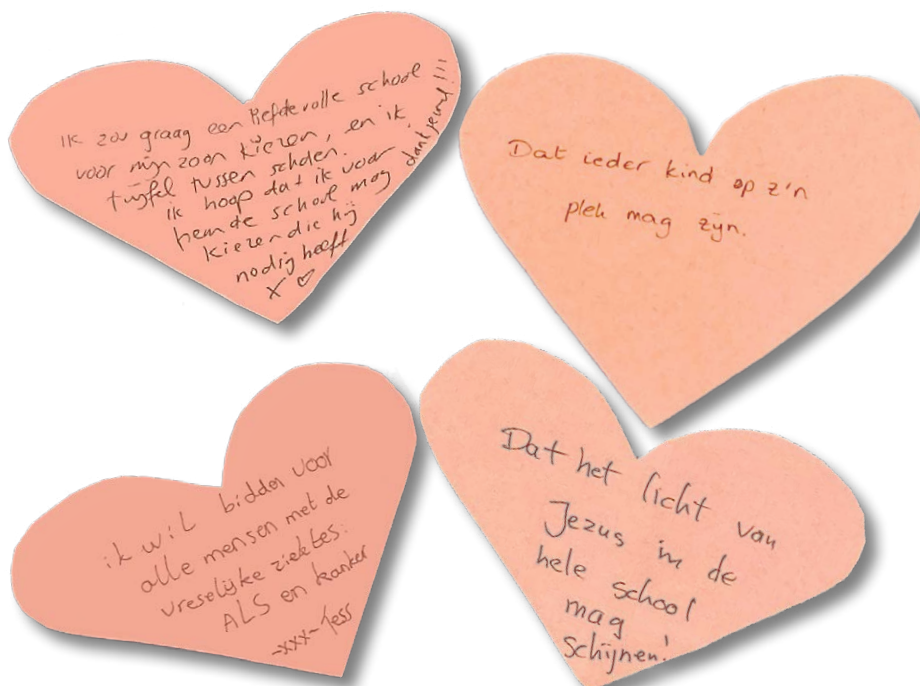 Ik zou graag een liefdevolle school
voor mijn zoon kiezen, en ik
twijfel tussen scholen.
ik hoop dat ik voor
hem de school mag
kiezen die hij
nodig heeft
x ♡
dankjewel!!!
Dat ieder kind op z'n
plek mag zijn.
ik wil bidden voor
alle mensen met de
vreselijke ziektes:
ALS en kanker
-xxx- Jess
Dat het licht van
Jezus in de
hele school
mag
schijnen!